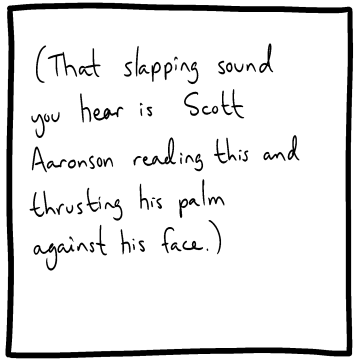 (That slapping sound
you hear is Scott
Aaronson reading this and
thrusting his palm
against his face.)